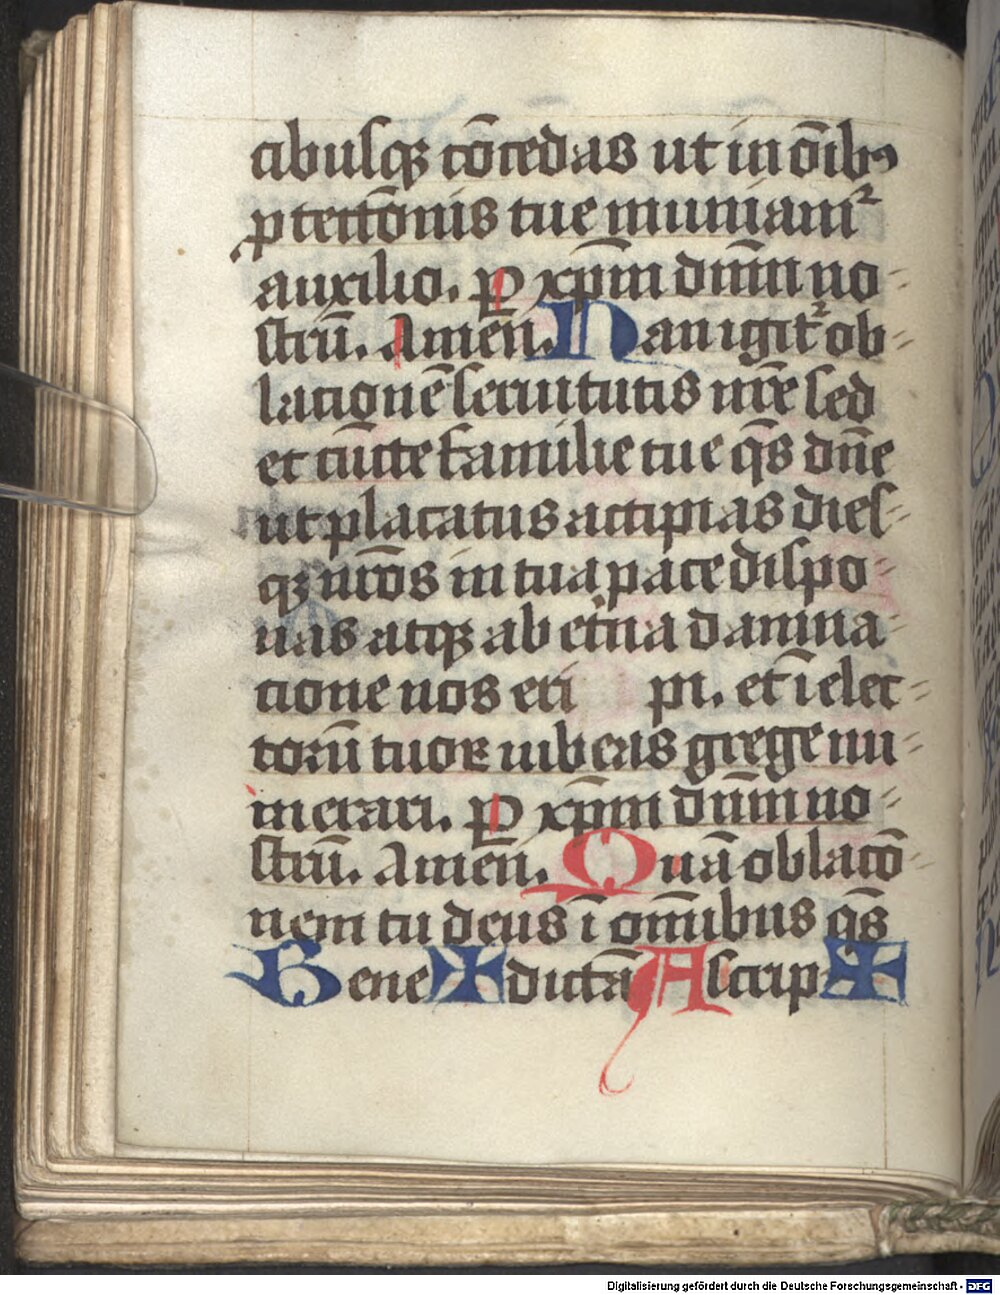 cibusqꝫ cōcedas ut in oībꝯ
ꝓtectōnis tue muniamᷣ
auxilio. ꝑ xp̄m dn̄m no⸗
strū. Amen. Hanc igitᷣ ob⸗
lacionē seruitutis nr̄e sed
et cūcte familie tue qs̄ dn̄e
ut placatus accipias dies⸗
qꝫ nr̄os in tua pace dispo⸗
nas atqꝫ ab et̓na damna⸗
cione nos eri pi. et ī elec⸗
torū tuoꝝ iubeas grege nu⸗
merari. ꝑ xp̄m dn̄m no⸗
strū. Amen. Quā oblacō⸗
nem tu deus ī om̄ibus qs̄
Bene ✠ dictā Ascrip ✠
Digitalisierung gefördert durch die Deutsche Forschungsgemeinschaft - DFG